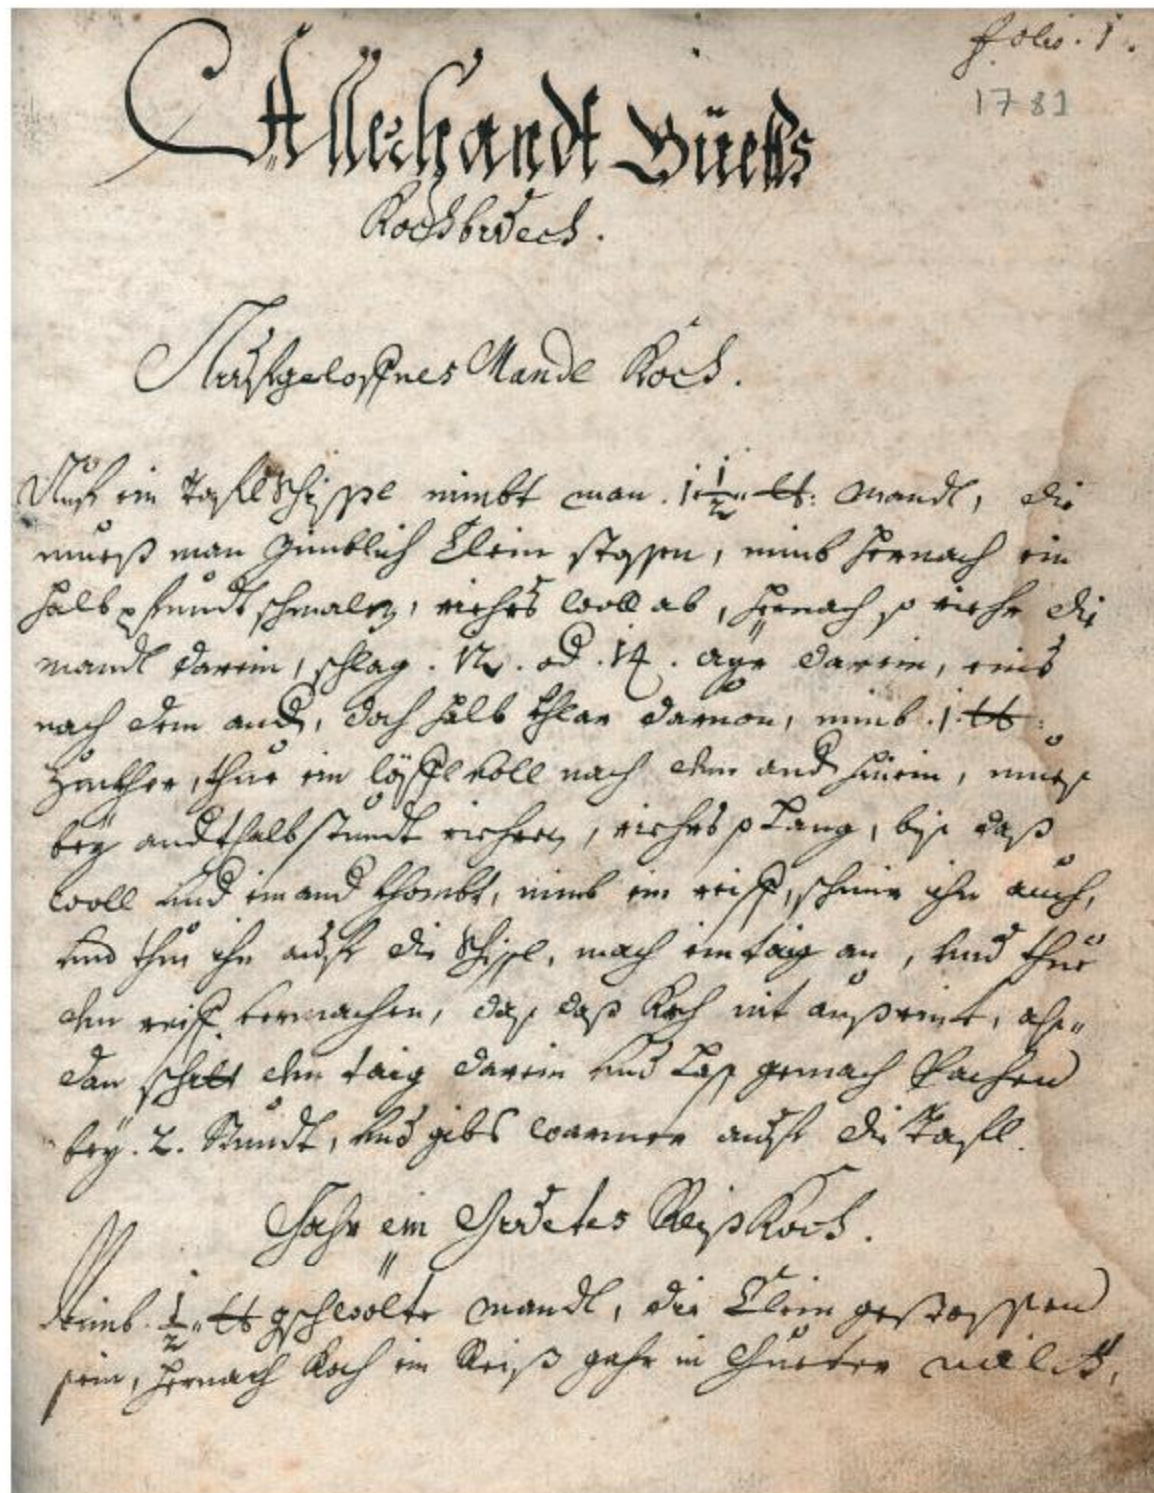 folio. 1.
1781
Allerhandt Guetts
Kochbuech.
Auffgeloffnes Mandl Koch.
Auf ein tafl Schissl nimbt man . 1 1/2 lb: mandl, die
mueß man zimblich klein stossen, nimb hernach ein
halb pfundt schmalz, riehrs woll ab, hernach so riehr die
mandl darein, schlag . 12 . od . 14 . ayr darein, eins
nach dem and, doch halb khlar daruon, nimb . 1 . lb :
Zuckher, thue ein löffl voll nach dem and hinein, mues
bey andthalb stundt riehren, riehrs so lang, biß daß
woll und einand khombt, nimb ein reiff, schmir ihn auch,
und thue ihn auf die Schissl, mach ein taig an, und thue
den reiff vermachen, das daß Koch nit außrint, als„
dan schitt den taig darein und laß gemach bachen
bey . 2 . Stundt, und gibs warmer auf die Tafl.
Gahr ein Guetes Reiß Koch.
Nimb . 1/2 „ lb gschwölte mandl, die klein gestossen
sein, hernach koch ein Reiß gahr in gueter milch,